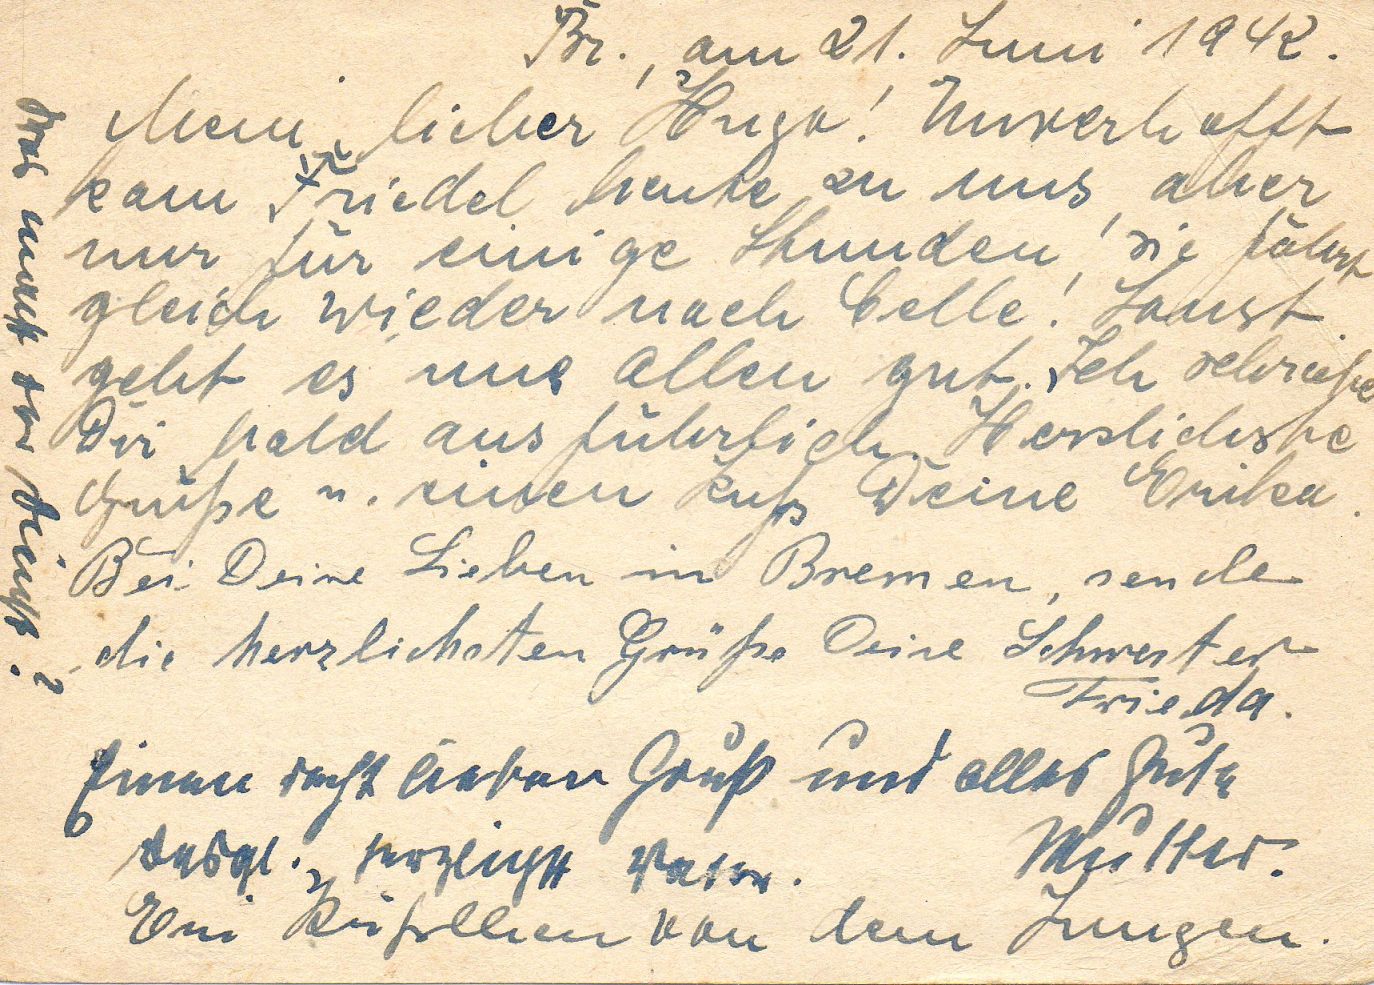 Br., am 21. Juni 1942.
Mein lieber Hugo! Unverhofft
kam Friedel heute zu uns, aber
nur für einige Stunden, sie fährt
gleich wieder nach Celle! Sonst
geht es uns allen gut. Ich schreibe
Dir bald ausführlich. Herzlichste
Grüße u. einen Kuß Deine Erika.
Bei Deine Lieben in Bremen, sende
die herzlichsten Grüße Deine Schwester
Frieda.
Einen recht lieben Gruß und alles Gute
Mutter.
desgl. herzlichst Vater.
Ein Küßchen von dem Jungen.
Was macht der